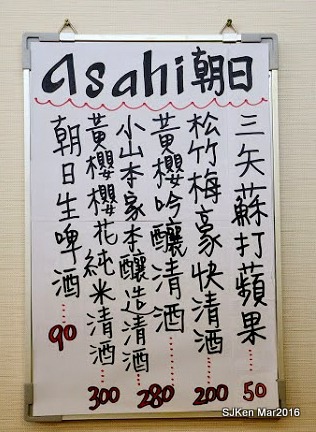 asahi朝日
三矢蘇打蘋果……50
松竹梅豪快清酒……200
黃櫻吟釀清酒……280
小山本家本釀造清酒……
黃櫻櫻花純米清酒……300
朝日生啤酒……90
SJKen Mar2016